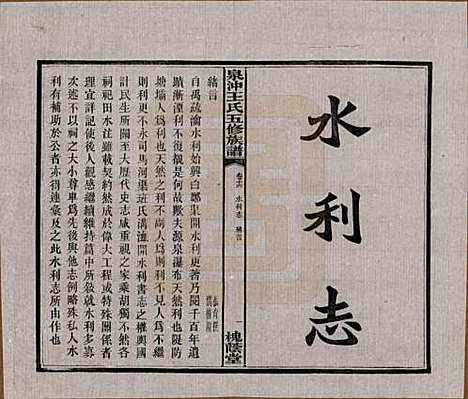 水利志
泉冲王氏五修族譜
卷十六 水利志 緒言
一 槐蔭堂
緒言
自禹疏瀹水利始興白鄭渠開水利更著乃閱千百年遺
蹟漸湮利不復覩是何故歟夫源泉瀑布天然利也隄防
塘壩人爲利也天然之利不兩人爲
則利更不永司馬河渠班氏溝洫開水利書志之權輿國
計民生所關至大歷代史志咸重視之家乘胡獨不然
祠田水注雖載契約然或於偉大工程或特殊關係者
理宜詳記俾後人觀感繼續維持篇中所敘就水利多寡
次述不以祠之大小尊卑爲先後與他志例略殊私人水
利有補助於公者亦連彙及之此水利志所由作也